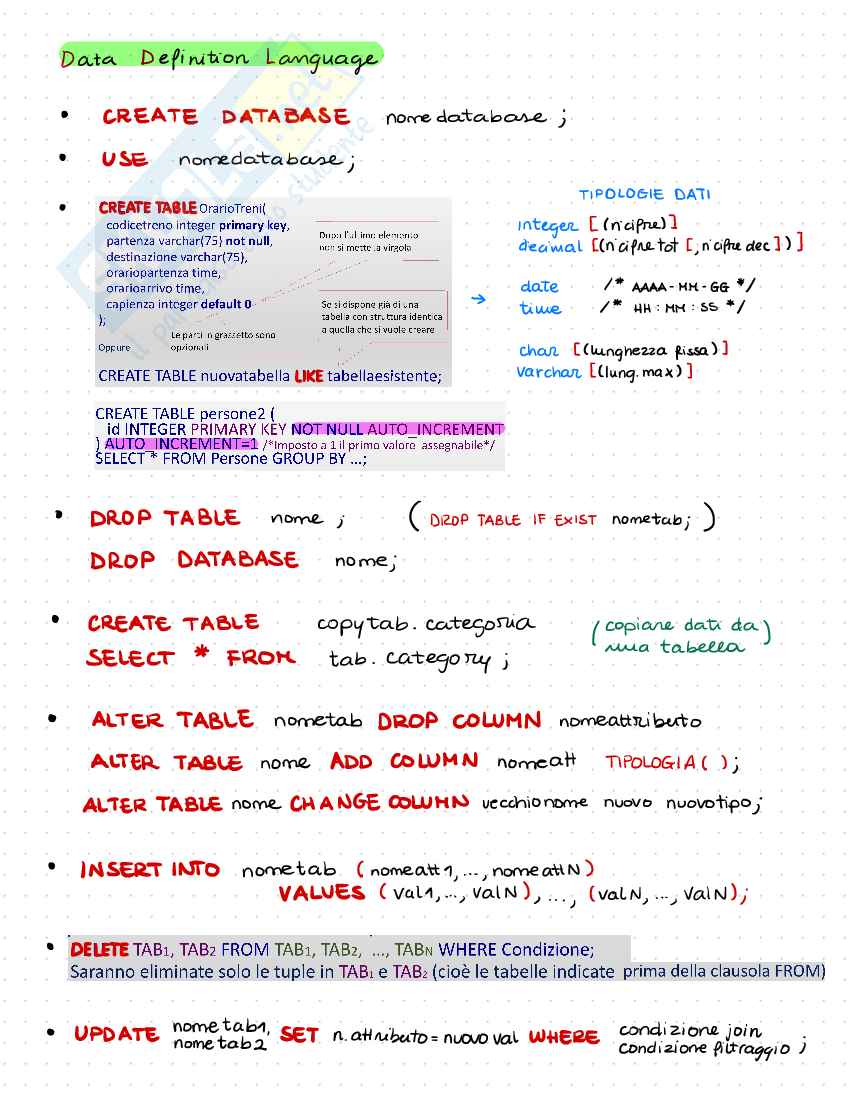 Data Definition Language
• CREATE DATABASE nomedatabase ;
• USE nomedatabase;
• CREATE TABLE OrarioTreni(
codicetreno integer primary key,
partenza varchar(75) not null,
destinazione varchar(75),
orariopartenza time,
orarioarrivo time,
capienza integer default 0
);
Dopo l'ultimo elemento
non si mette la virgola
Se si dispone già di una
tabella con struttura identica
a quella che si vuole creare
Le parti in grassetto sono
opzionali
Oppure
CREATE TABLE nuovatabella LIKE tabellaesistente;
→
TIPOLOGIE DATI
integer [(n°cifre)]
decimal [(n°cifre tot [, n°cifre dec])]
date /* AAAA-MM-GG */
time /* HH:MM:SS */
char [(lunghezza fissa)]
varchar [(lung.max)]
CREATE TABLE persone2 (
id INTEGER PRIMARY KEY NOT NULL AUTO_INCREMENT
) AUTO_INCREMENT=1 /*Imposto a 1 il primo valore assegnabile*/
SELECT * FROM Persone GROUP BY ...;
• DROP TABLE nome ; ( DROP TABLE IF EXIST nometab; )
DROP DATABASE nome;
• CREATE TABLE copytab.categoria
SELECT * FROM tab.category ;
(copiare dati da
una tabella)
• ALTER TABLE nometab DROP COLUMN nomeattributo
ALTER TABLE nome ADD COLUMN nomeatt TIPOLOGIA( );
ALTER TABLE nome CHANGE COLUMN vecchionome nuovo nuovotipo;
• INSERT INTO nometab (nomeatt1,...,nomeattN)
VALUES (val1,..., valN), ..., (valN, ..., ValN);
• DELETE TAB1, TAB2 FROM TAB1, TAB2, ..., TABN WHERE Condizione;
Saranno eliminate solo le tuple in TAB1 e TAB2 (cioè le tabelle indicate prima della clausola FROM)
• UPDATE nometab1, nometab2 SET n.attributo = nuovo val WHERE condizione join
condizione filtraggio ;